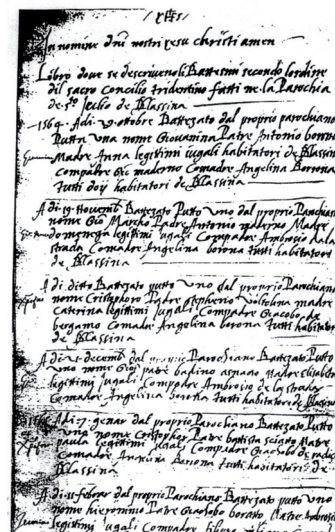 In nomine dni nostri yesu christi amen
Libro dove se descriveno li Battesmi secondo lordine
dil sacro Concilio tridentino fatti ne la Parochia
de sto Julio di Blassina
1564. Adi ottobre Battezato dal proprio parochiano
Putta una nome Giovanina Patre Antonio
Madre Anna legitimi iugali habitatori de Blassina
Compadre Gio maderno Comadre Angelina Borona
tutti doy habitatori de Blassina
Adi 19 Novemb Battezato Putto uno dal proprio Parochiano
nome Gio Marcho Padre Antonio maderno Madre
domenega legitimi iugali Compadre Ambrosio dala
strada Comadre Angelina borona tutti habitatori
de Blassina
Adi ditto Battezato putto uno dal proprio Parochiano
nome Cristophoro Padre stephenio voltelina madre
Caterina legitimi Jugali Compadre Giacobo da
bergamo Comadre Angelina borona tutti habitatori
de Blassina
Adi decemb dal proprio Parochiano Battezato Putto
uno nome Gio patre badino Madre Elisabeta
legitimi jugali Compadre Ambrosio de la strada
Comadre Angelina Borona tutti habitatori de Blassina
Adi 7 genar dal proprio Parochiano Battezato Putto
uno nome Cristophor Patre baptista Matre
paula legitimi iugali Compadre Giacobo de
Comadre Angelina Borona tutti habitatori de
Blassina
Adi 11 febrar dal proprio Parochiano Battezato putto uno
nome hieronimo Patre Giacobo Matre
legitimi iugali Compadre